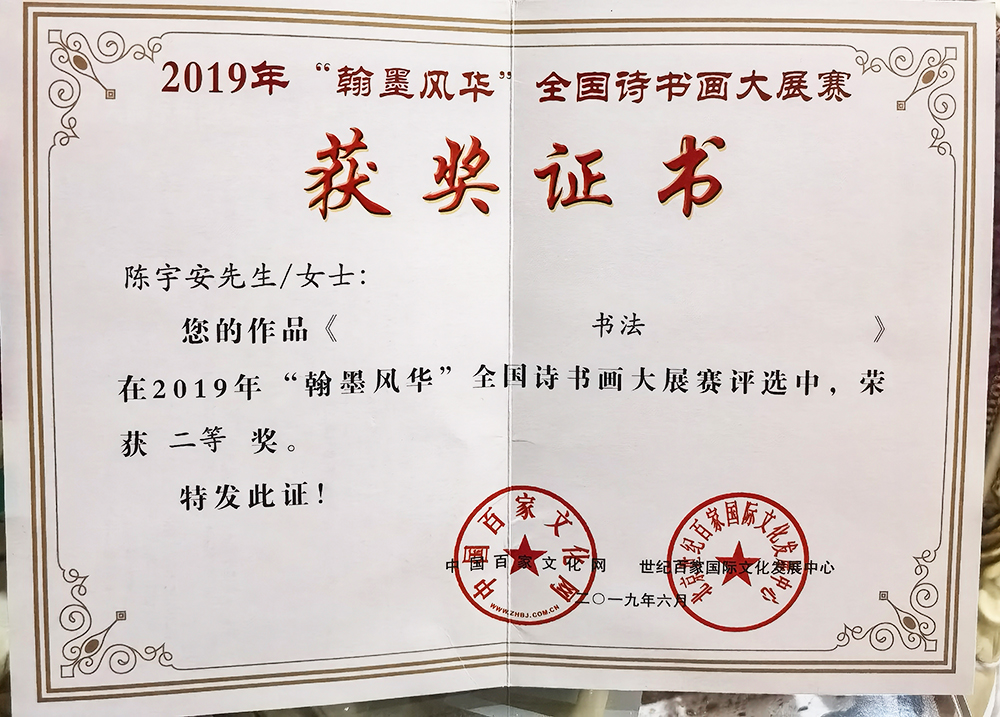 2019年“翰墨风华”全国诗书画大展赛
获奖证书
陈宇安先生/女士：
您的作品《 书法 》
在2019年“翰墨风华”全国诗书画大展赛评选中，荣
获 二等 奖。
特发此证！
中国百家文化网 世纪百家国际文化发展中心
二〇一九年六月
中国百家文化网
WWW.ZHBJ.COM.CN
北京世纪百家国际文化发展中心